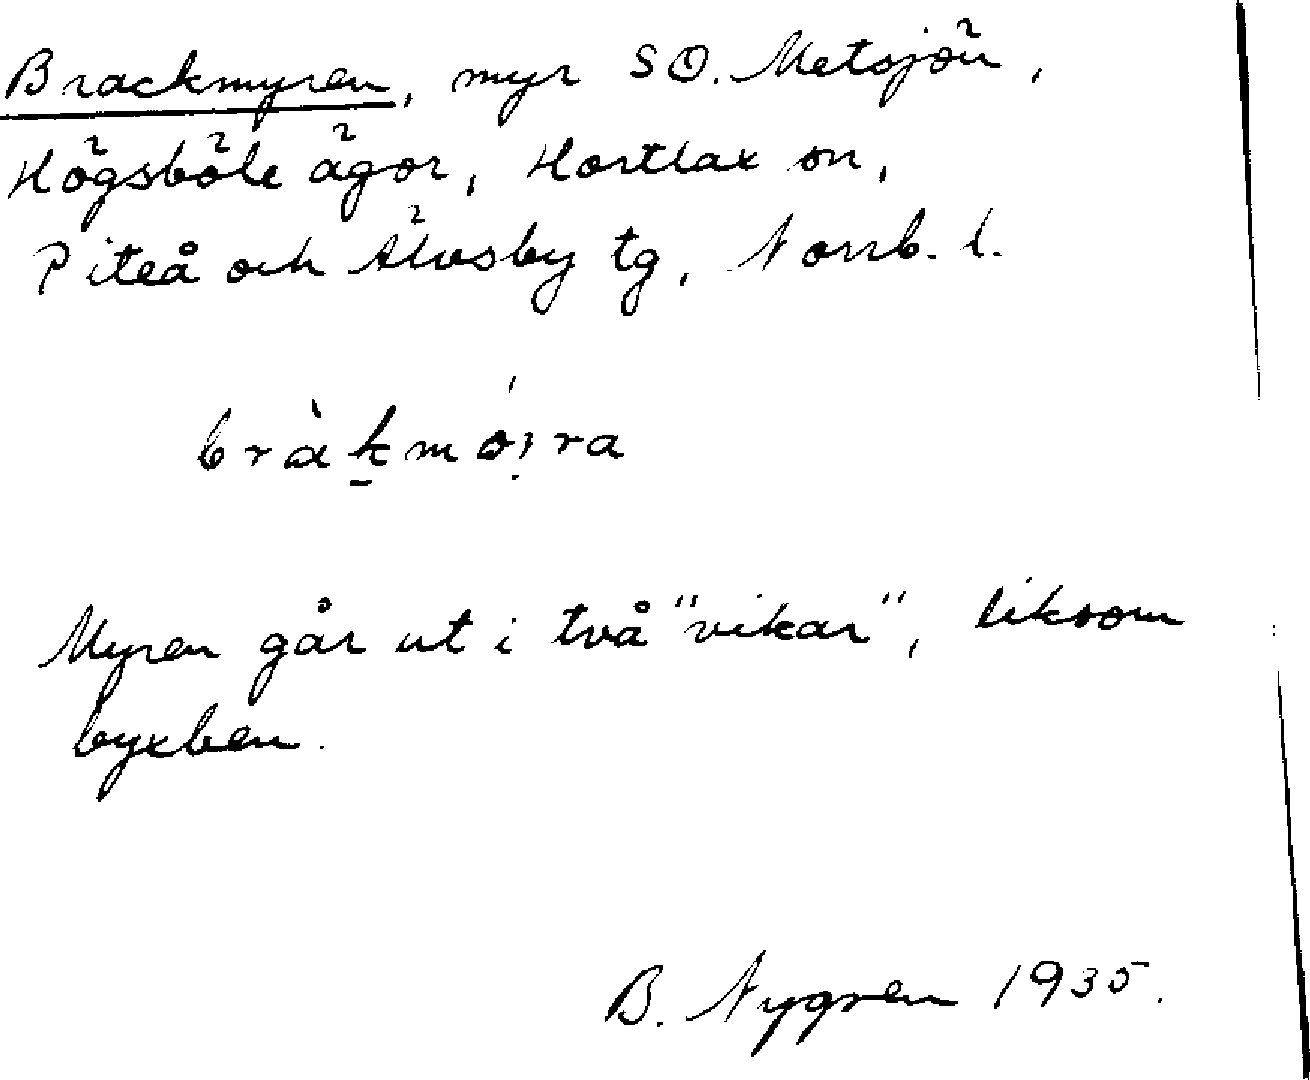 Brackmyren, myr SO. Metsjön,
Högsböle ägor, Hortlax sn,
Piteå och Älvsby tg, Norrb. l.
bràk̠mó̤ira
Myren går ut i två "vikar", liksom
byxben.
B. Nygren 1935.